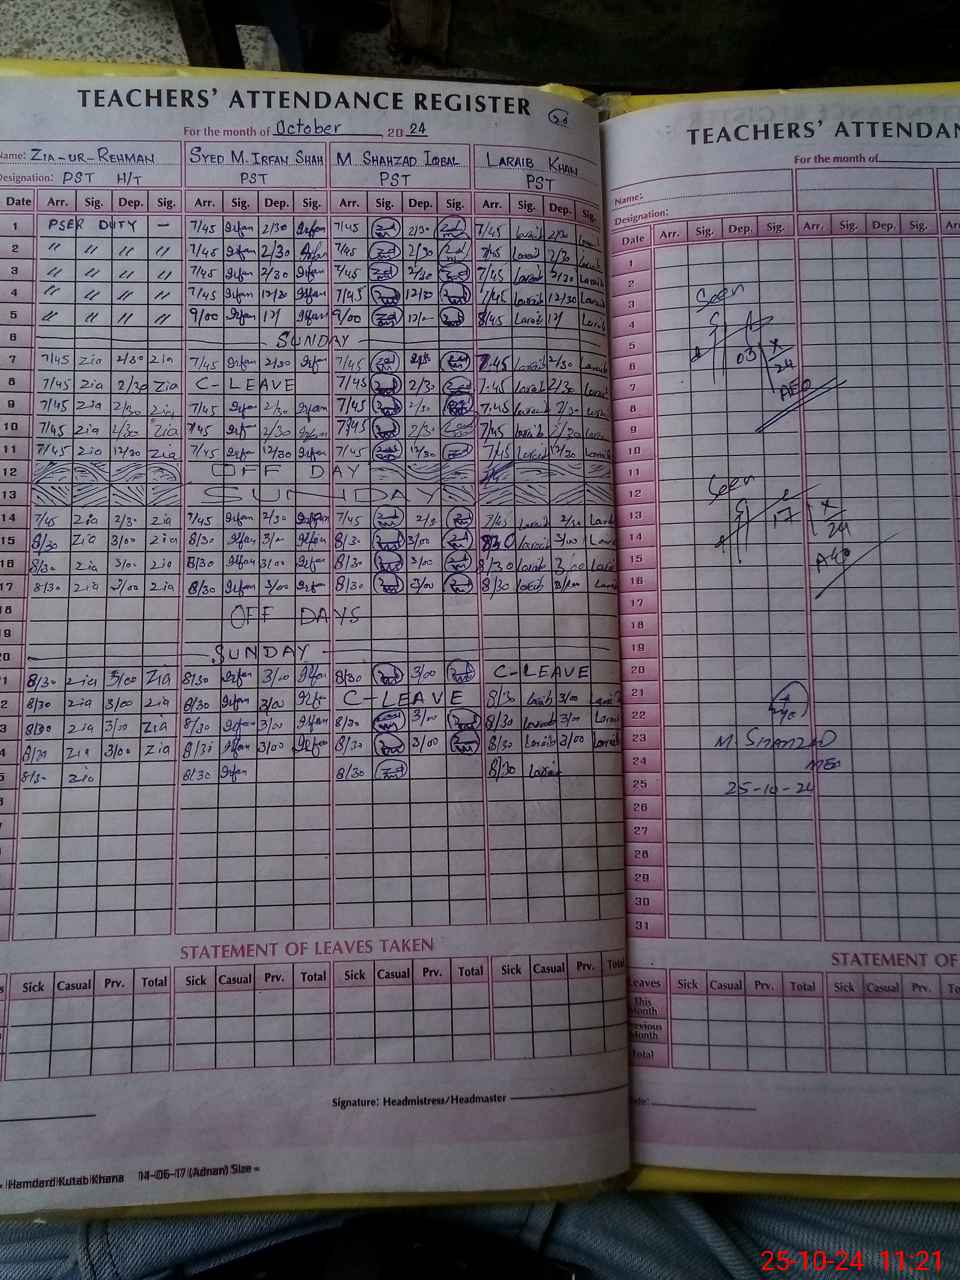 TEACHERS' ATTENDANCE REGISTER
For the month of October 2024
Name: ZIA-UR-REHMAN SYED M. IRFAN SHAH M. SHAHZAD IQBAL LARAIB KHAN
Designation: PST H/T PST PST PST
Date Arr. Sig. Dep. Sig. Arr. Sig. Dep. Sig. Arr. Sig. Dep. Sig. Arr. Sig. Dep. Sig.
1 PSER DUTY — 7/45 Irfan 2/30 Irfan 7/45 2/30 7/45 Laraib 2/30
2 " " " " 7/45 Irfan 2/30 Irfan 7/45 2/30 7/45 Laraib 2/30 Laraib
3 " " " " 7/45 Irfan 2/30 Irfan 7/45 2/30 7/45 Laraib 2/30 Laraib
4 " " " " 7/45 Irfan 12/30 Irfan 7/45 12/30 7/45 Laraib 12/30 Laraib
5 " " " " 9/00 Irfan 12/ Irfan 9/00 12/ 8/45 Laraib 12/ Laraib
6 SUNDAY
7 7/45 Zia 2/30 Zia 7/45 Irfan 2/30 Irfan 7/45 2/30 7:45 Laraib 2/30 Laraib
8 7/45 Zia 2/30 Zia C-LEAVE 7/45 2/30 7:45 Laraib 2/30 Laraib
9 7/45 Zia 2/30 Zia 7/45 Irfan 2/30 Irfan 7/45 2/30 7:45 Laraib 2/30
10 7/45 Zia 2/30 Zia 7/45 Irfan 2/30 Irfan 7/45 2/30 7/45 Laraib 2/30 Laraib
11 7/45 Zia 12/30 Zia 7/45 Irfan 12/30 Irfan 7/45 12/30 7/45 Laraib 12/30 Laraib
12 OFF DAY
13 SUNDAY
14 7/45 Zia 2/30 Zia 7/45 Irfan 2/30 Irfan 7/45 2/30 7/45 Laraib 2/30 Laraib
15 8/30 Zia 3/00 Zia 8/30 Irfan 3/00 Irfan 8/30 3/00 830 Laraib 3/00 Laraib
16 8/30 Zia 3/00 Zia 8/30 Irfan 3/00 Irfan 8/30 3/00 8/30 Laraib 3/00 Laraib
17 8/30 Zia 3/00 Zia 8/30 Irfan 3/00 Irfan 8/30 3/00 8/30 Laraib Laraib
18 OFF DAYS
19
20 SUNDAY
1 8/30 Zia 3/00 Zia 8/30 Irfan 3/00 Irfan 8/30 3/00 C-LEAVE
2 8/30 Zia 3/00 Zia 8/30 Irfan 3/00 Irfan C-LEAVE 8/30 Laraib 3/00 Laraib
3 8/30 Zia 3/00 Zia 8/30 Irfan 3/00 Irfan 8/30 3/00 8/30 Laraib 3/00 Laraib
4 8/30 Zia 3/00 Zia 8/30 Irfan 3/00 Irfan 8/30 3/00 8/30 Laraib 3/00 Laraib
5 8/30 Zia 8/30 Irfan 8/30 8/30 Laraib
STATEMENT OF LEAVES TAKEN
Sick Casual Prv. Total Sick Casual Prv. Total Sick Casual Prv. Total Sick Casual Prv. Total
Signature: Headmistress/Headmaster
Hamdard Kutab Khana 14-06-17 (Adnan) Size =
TEACHERS' ATTENDAN
For the month of
Name:
Designation:
Date Arr. Sig. Dep. Sig. Arr. Sig. Dep. Sig. Arr.
1
2
3 Seen
4
5 03 X
6 24
7 AEO
8
9
10
11
12 Seen
13 17 X
14 24
15 AEO
16
17
18
19
20
21
22
23 M. SHAHZAD
24 MEA
25 25-10-24
26
27
28
29
30
31
STATEMENT OF
Leaves Sick Casual Prv. Total Sick Casual Prv. To
This Month
Previous Month
Total
Date:
25-10-24 11:21